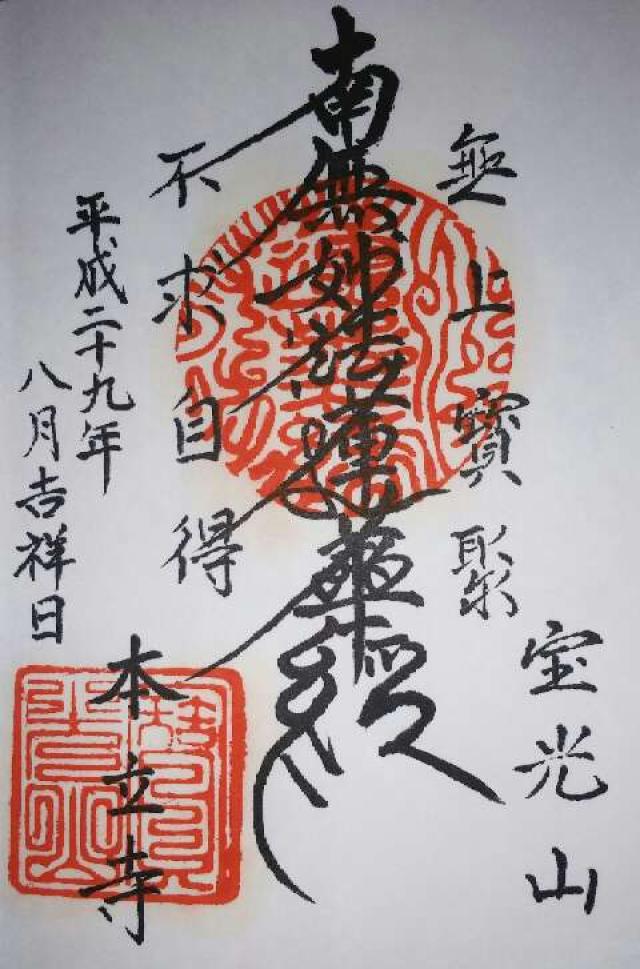 宝光山
無上寳聚
南無妙法蓮華経
不求自得
平成二十九年
八月吉祥日
本立寺